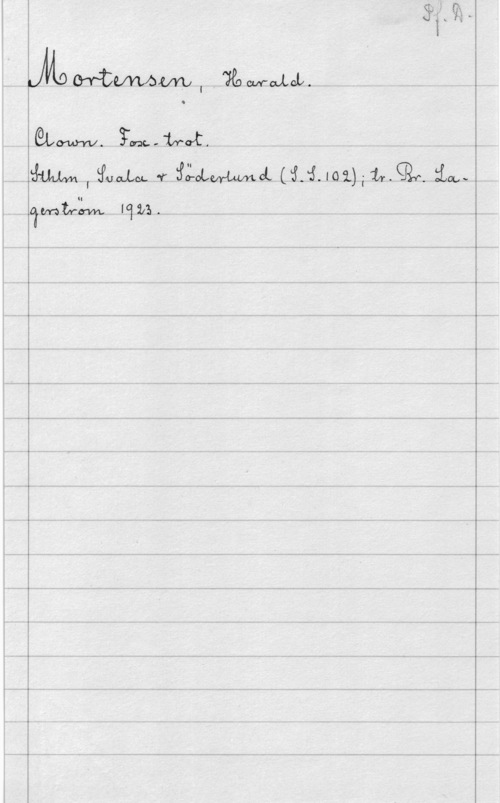 Pf. D.
Mortensen, Harald.
Clown. Fox-trot.
Sthlm, Svala & Söderlund (S.S.102); tr. Br. La-
gerström 1923.